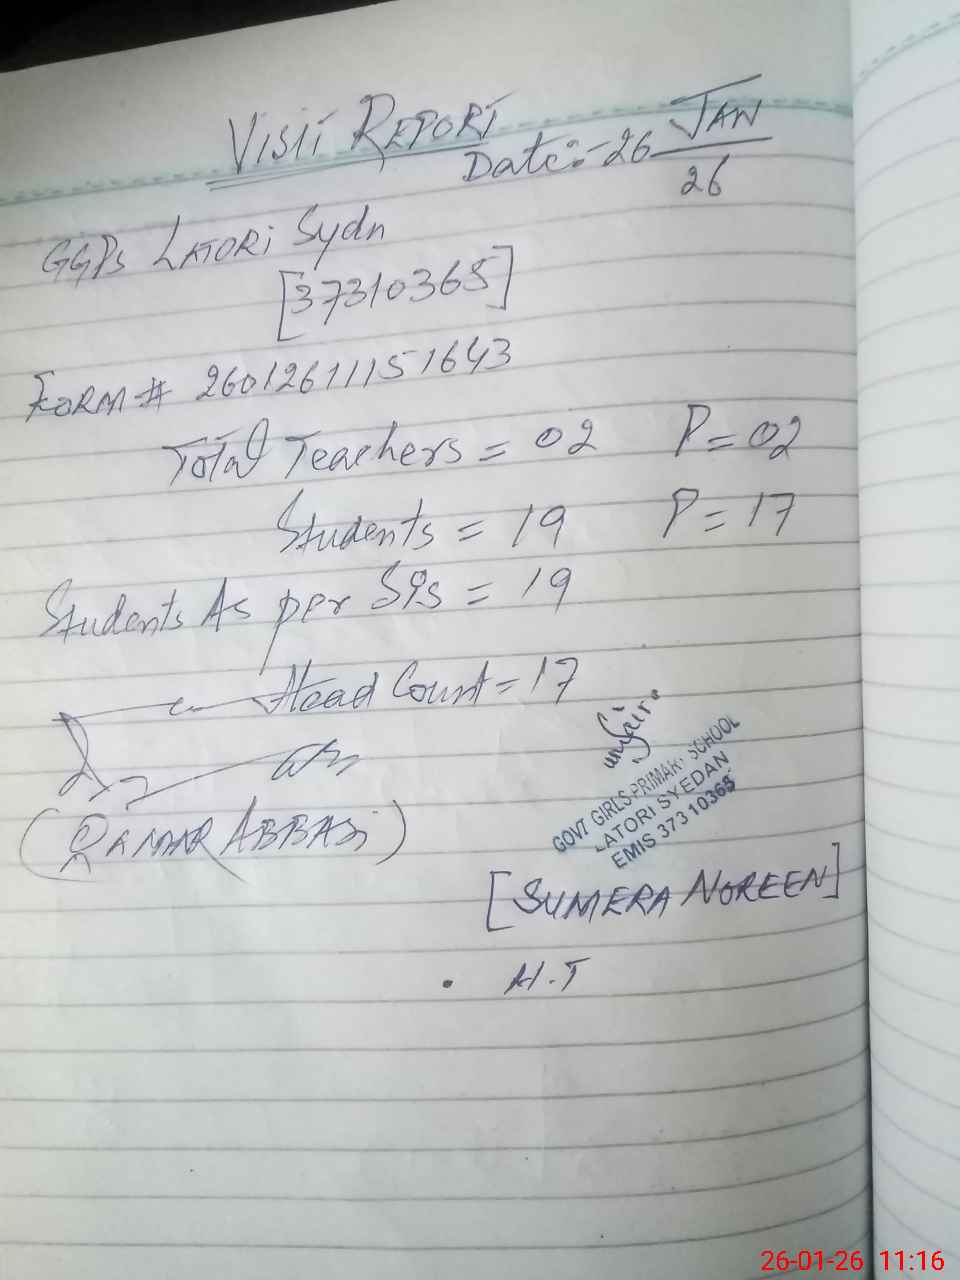 VISIT REPORT
Date:- 26 JAN
26
GGPs LATORI Sydn
[37310365]
FORM # 26012611151643
Total Teachers = 02 P = 02
Students = 19 P = 17
Students As per SIS = 19
Head Count = 17
GOVT GIRLS PRIMARY SCHOOL
LATORI SYEDAN
EMIS 37310365
(QAMAR ABBASi)
[SUMERA NOREEN]
H.T
26-01-26 11:16